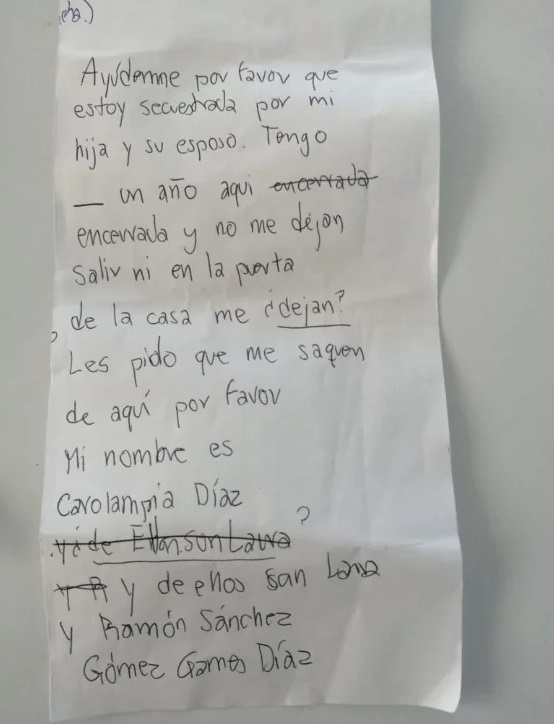 Ayúdenme por favor que
estoy secuestrada por mi
hija y su esposo. Tengo
_ un año aqui encerrada
encerrada y no me dejan
Salir ni en la puerta
de la casa me ¿dejan?
Les pido que me saquen
de aquí por favor
Mi nombre es
Carolampia Díaz
?
y de ellos san Lana
y Ramón Sánchez
Gómez Gomes Díaz